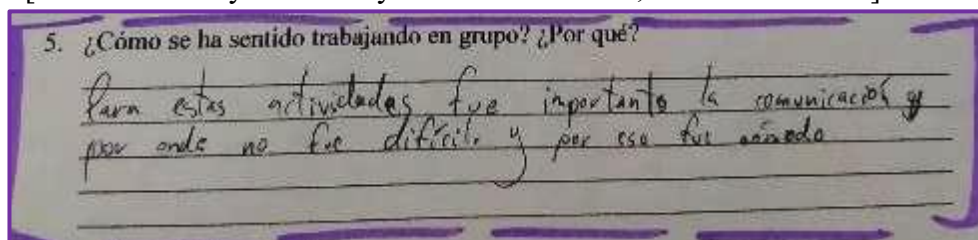 5. ¿Cómo se ha sentido trabajando en grupo? ¿Por qué?
Para estas actividades fue importante la comunicación y
por ende no fue difícil, y por eso fue cómodo